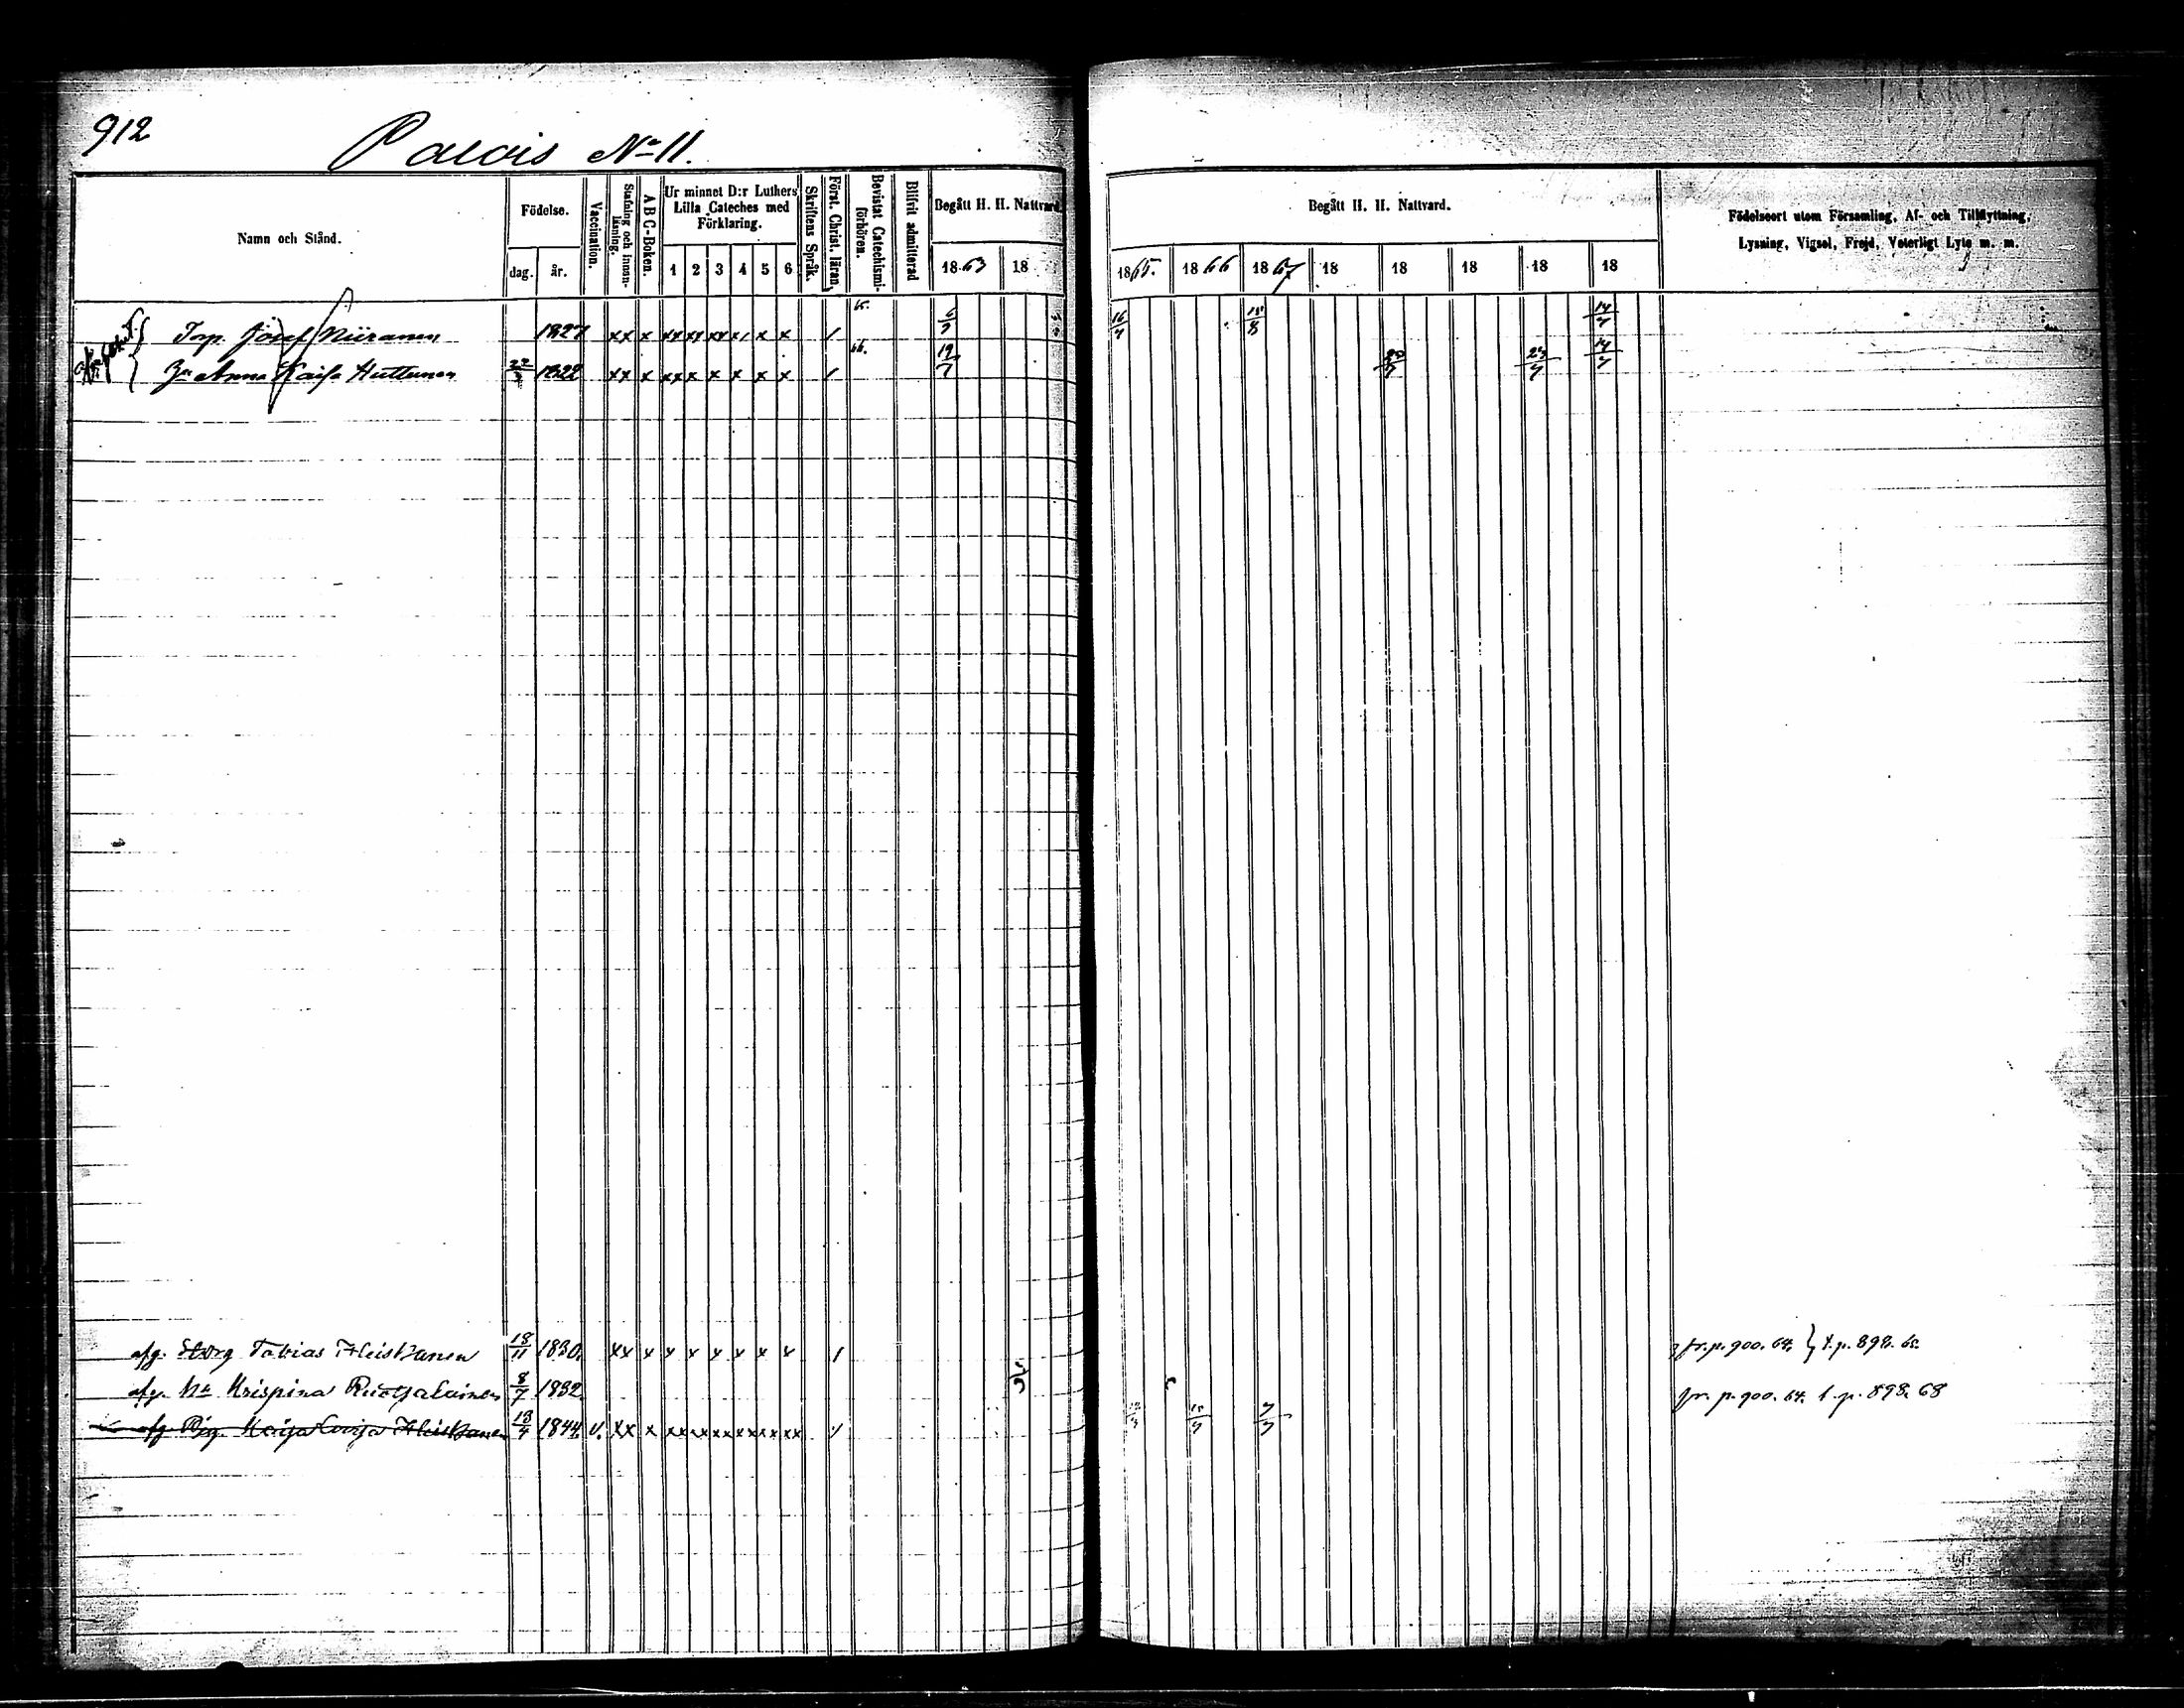 912
Palois No 11.
Namn och Stånd.
Födelse.
dag.
år.
Vaccination.
Stafning och Innanläsning.
A B C-Boken.
Ur minnet D:r Luthers Lilla Cateches med Förklaring.
1 2 3 4 5 6
Skriftens Språk.
Först. Christ. läran.
Bevistat Catechismiförhören.
Blifvit admitterad
Begått H. H. Nattvard.
1863 18
Begått H. H. Nattvard.
1865. 1866 1867 18 18 18 18 18
Födelseort utom Församling, Af- och Tillflyttning,
Lysning, Vigsel, Frejd, Veterligt Lyte m. m.
Josef Niiranen 1827 xx x xx xx xx x/ x x / 65. 6/7 16/7 18/8 14/7
Anna Kaisa Huttunen 22/3 1822 xx x xxx x x x x / 66. 19/7 20/7 23/7 14/7
afg. Tobias Heiskanen 18/11 1830. xx x x x x x x x / fr. p. 900. 64. } t. p. 898. 65.
afg. Hu Krispina Ruotsalainen 8/7 1832 fr. p. 900. 64. t. p. 898. 68
afg. Pig. Maija Lovisa Heiskanen 13/4 1844. v. xx x xx xx xx xx xx xx 7/7